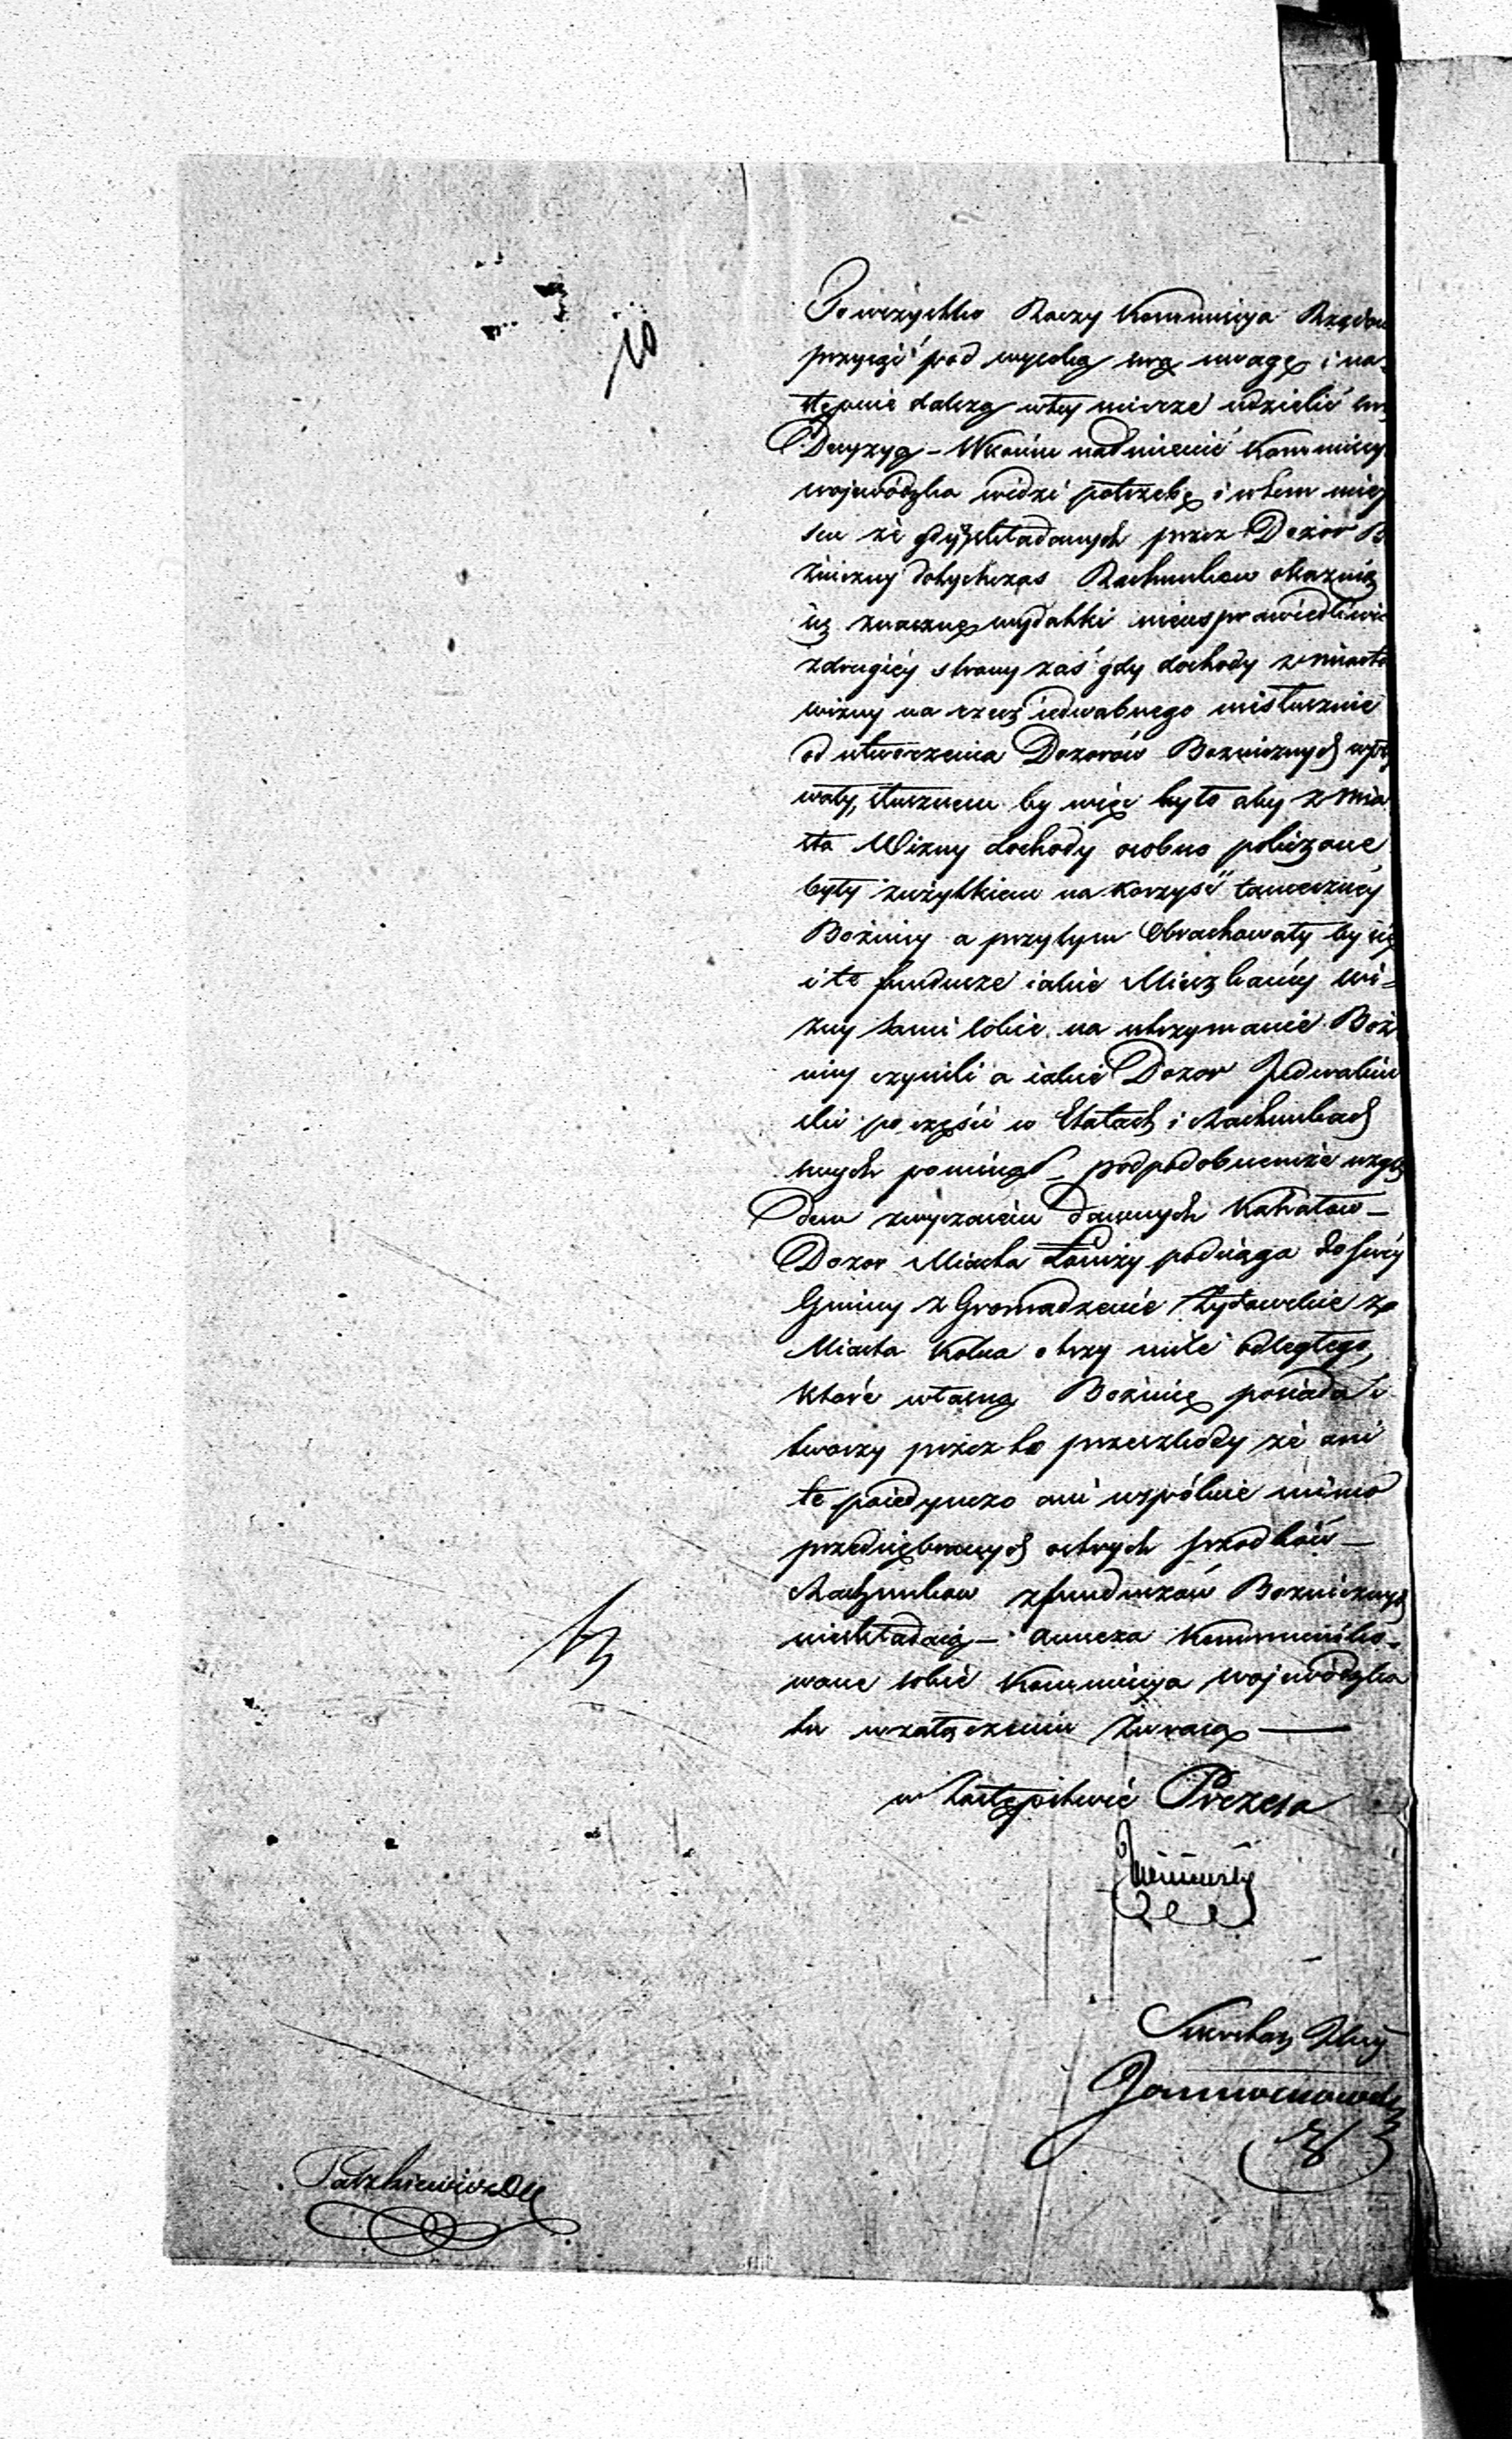 10
To wszystko Raczy Kommissya Rządow
przyjąć pod wysoką swą uwagę i na-
stępnie dalszą w tey mierze udzielić swą
Decyzyą – W końcu nadmienić Kommissy
wojewódzka widzi potrzebę i w tem miey
scu że gdy składanych przez Dozór B
żniczny dotychczas Rachunkow okazuią
się znaczne wydatki nieusprawiedliwio
z drugiéy strony zaś gdy dochody z miasta
wizny na rzecz iedwabnego niesłusznie
od utworzenia Dozorów Bożnicznych wpły
wały, słusznem by więc było aby z mia
sta Wizny dochody osobno policzone
były z użytkiem na korzyść tameczney
Bożnicy a przytym Obrachowały by się
i te fundusze iakie Mieszkańcy Wi-
zny sami sobie na utrzymanie Boż
nicy czynili a iakie Dozor Jedwabin
ski po części w Etatach i Rachunkach
swych pominął – pod podobnemże wzglę
dem zwyczaiem dawnych Kahałow –
Dozor Miasta Łomży podciąga do swéy
Gminy Zgromadzenie Żydowskie z
Miasta Kolna o trzy mile odległego,
które własną Bożnicę posiada i
tworzy przez to przeszkody że ani
te poiedynczo ani wspólnie mimo
przedsiębranych ostrych srzodków –
Rachunkow z funduszów Bożnicznych
nieskładaią – annexa Kommuniko-
wane sobie Kommissya wojewódzka
tu w załączeniu zwraca –
w Zastępstwie Prezesa
Sekretarz Jlny